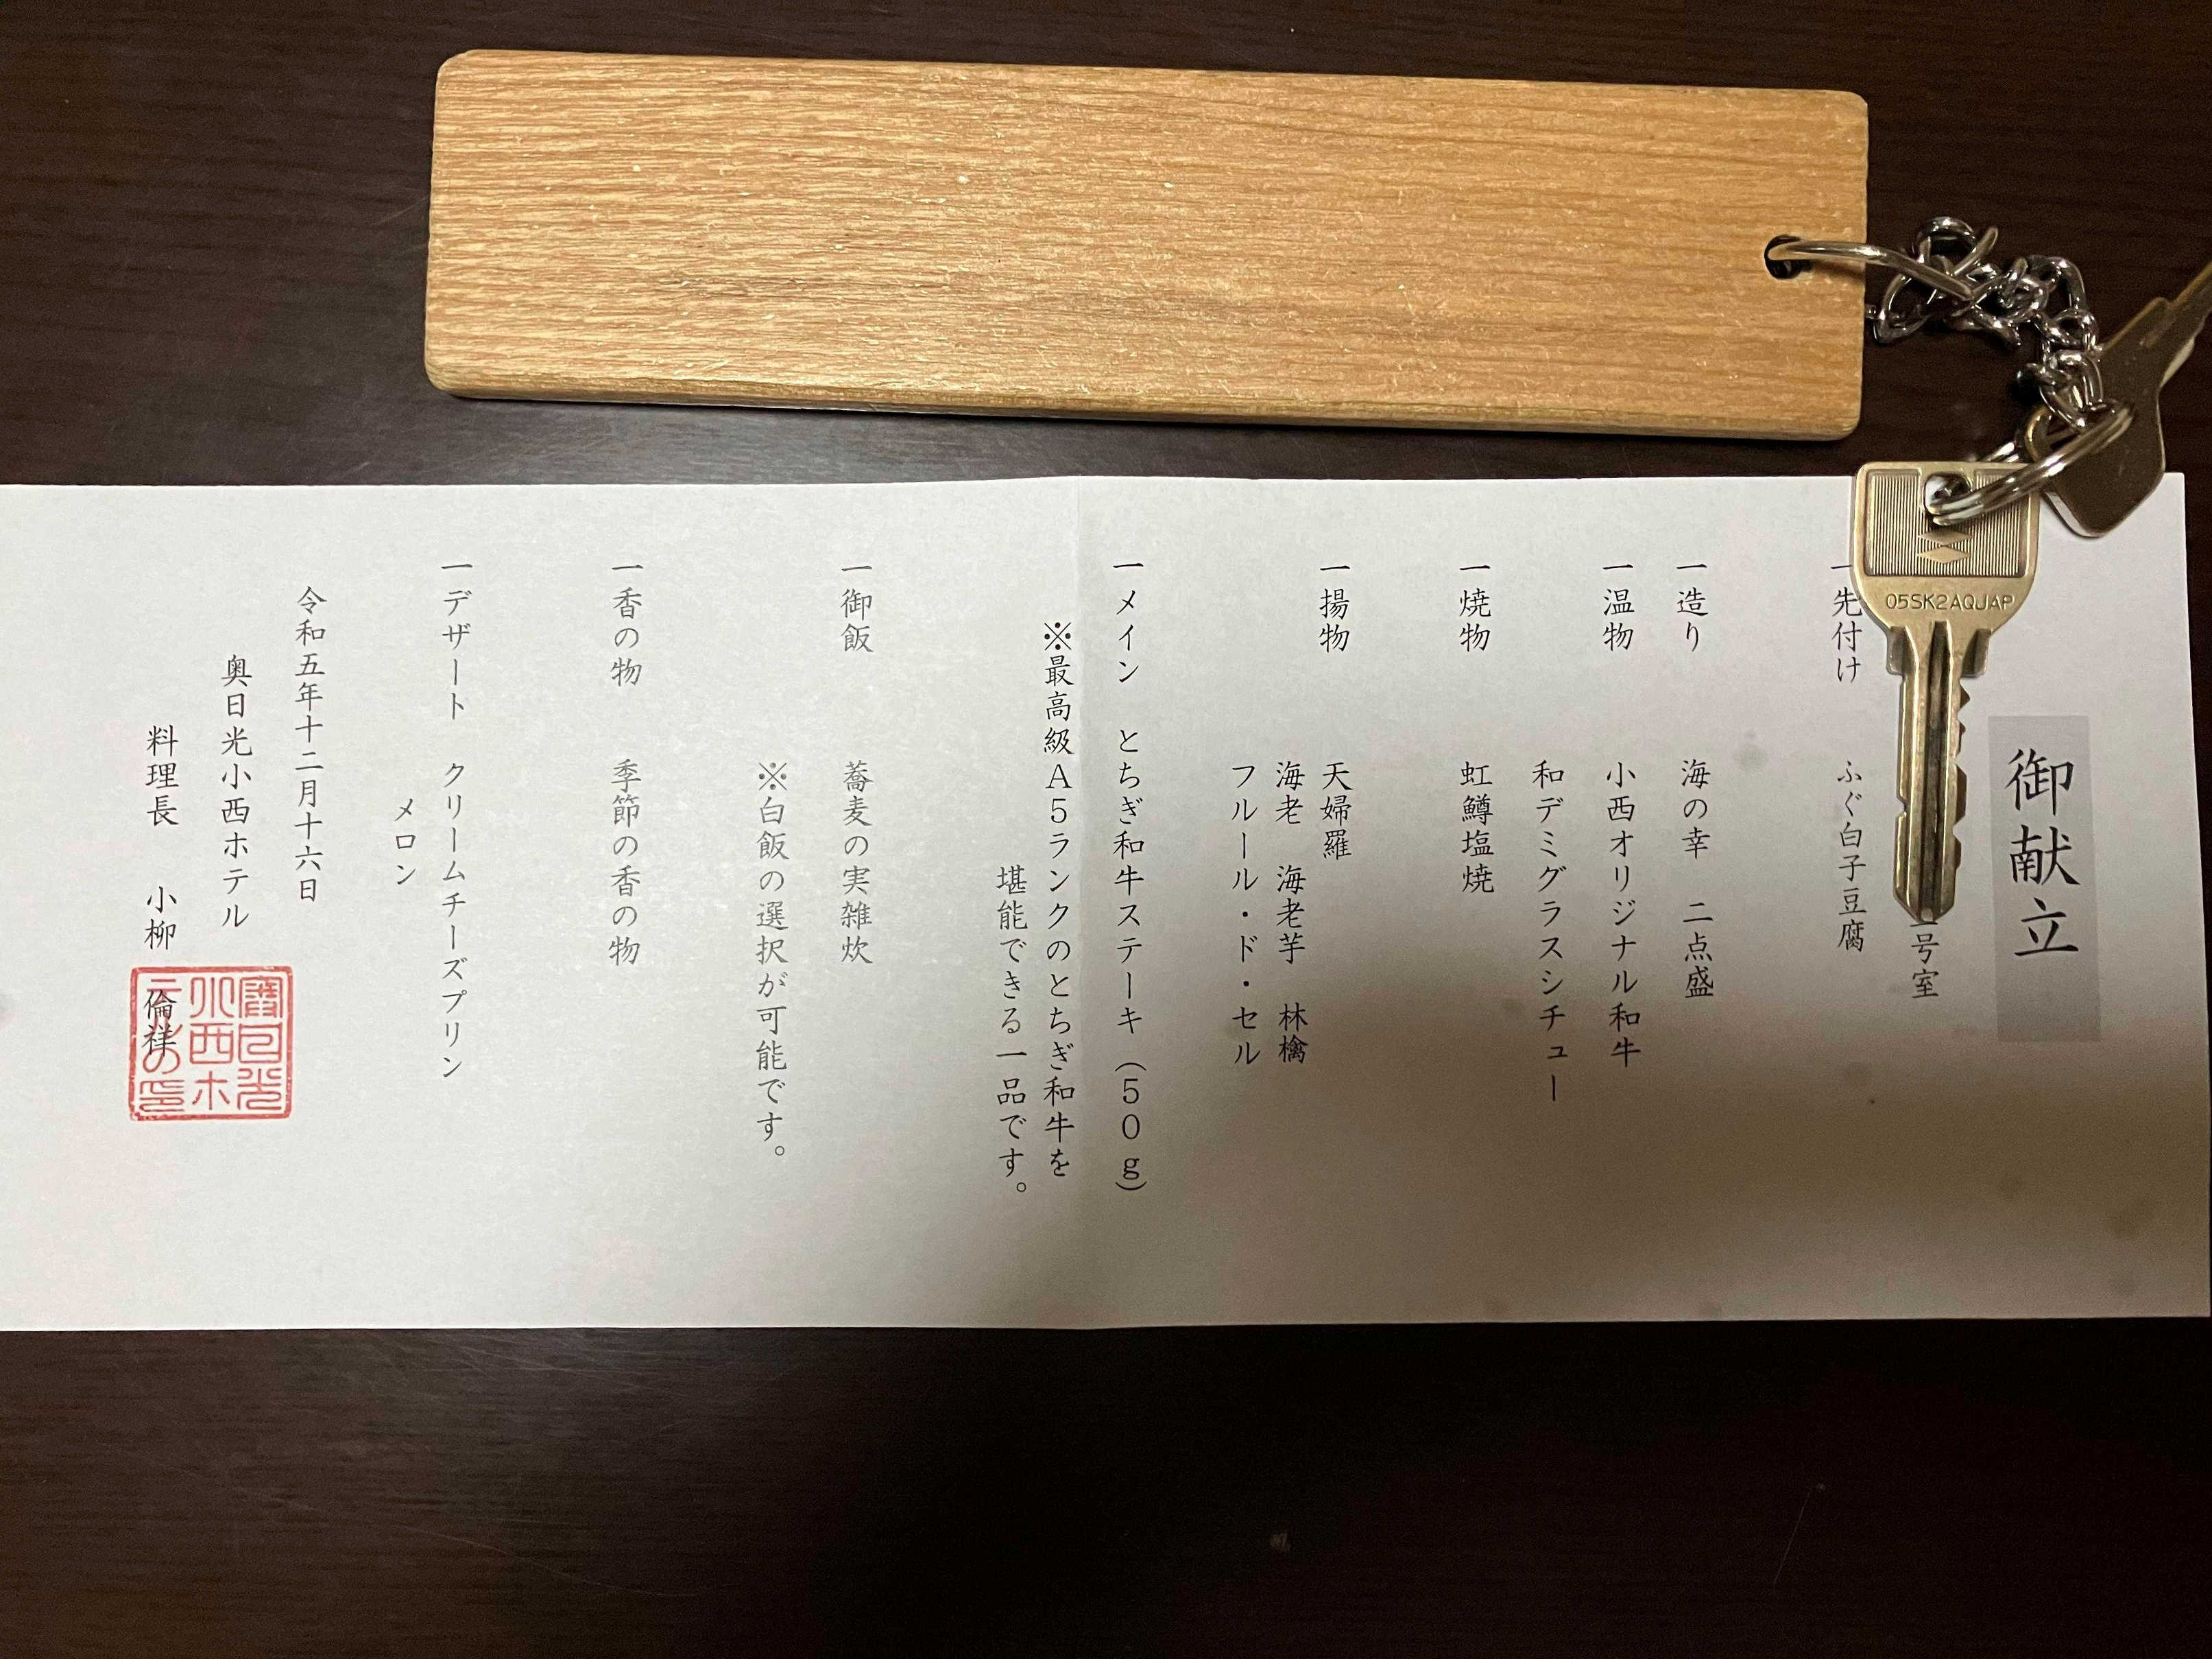 御献立
号室
一先付け　ふぐ白子豆腐
一造り　海の幸　二点盛
一温物　小西オリジナル和牛
和デミグラスシチュー
一焼物　虹鱒塩焼
一揚物　天婦羅
海老　海老芋　林檎
フルール・ド・セル
一メイン　とちぎ和牛ステーキ（５０ｇ）
※最高級Ａ５ランクのとちぎ和牛を
堪能できる一品です。
一御飯　蕎麦の実雑炊
※白飯の選択が可能です。
一香の物　季節の香の物
一デザート　クリームチーズプリン
メロン
令和五年十二月十六日
奥日光小西ホテル
料理長　小柳　倫祥
05SK2AQUAP